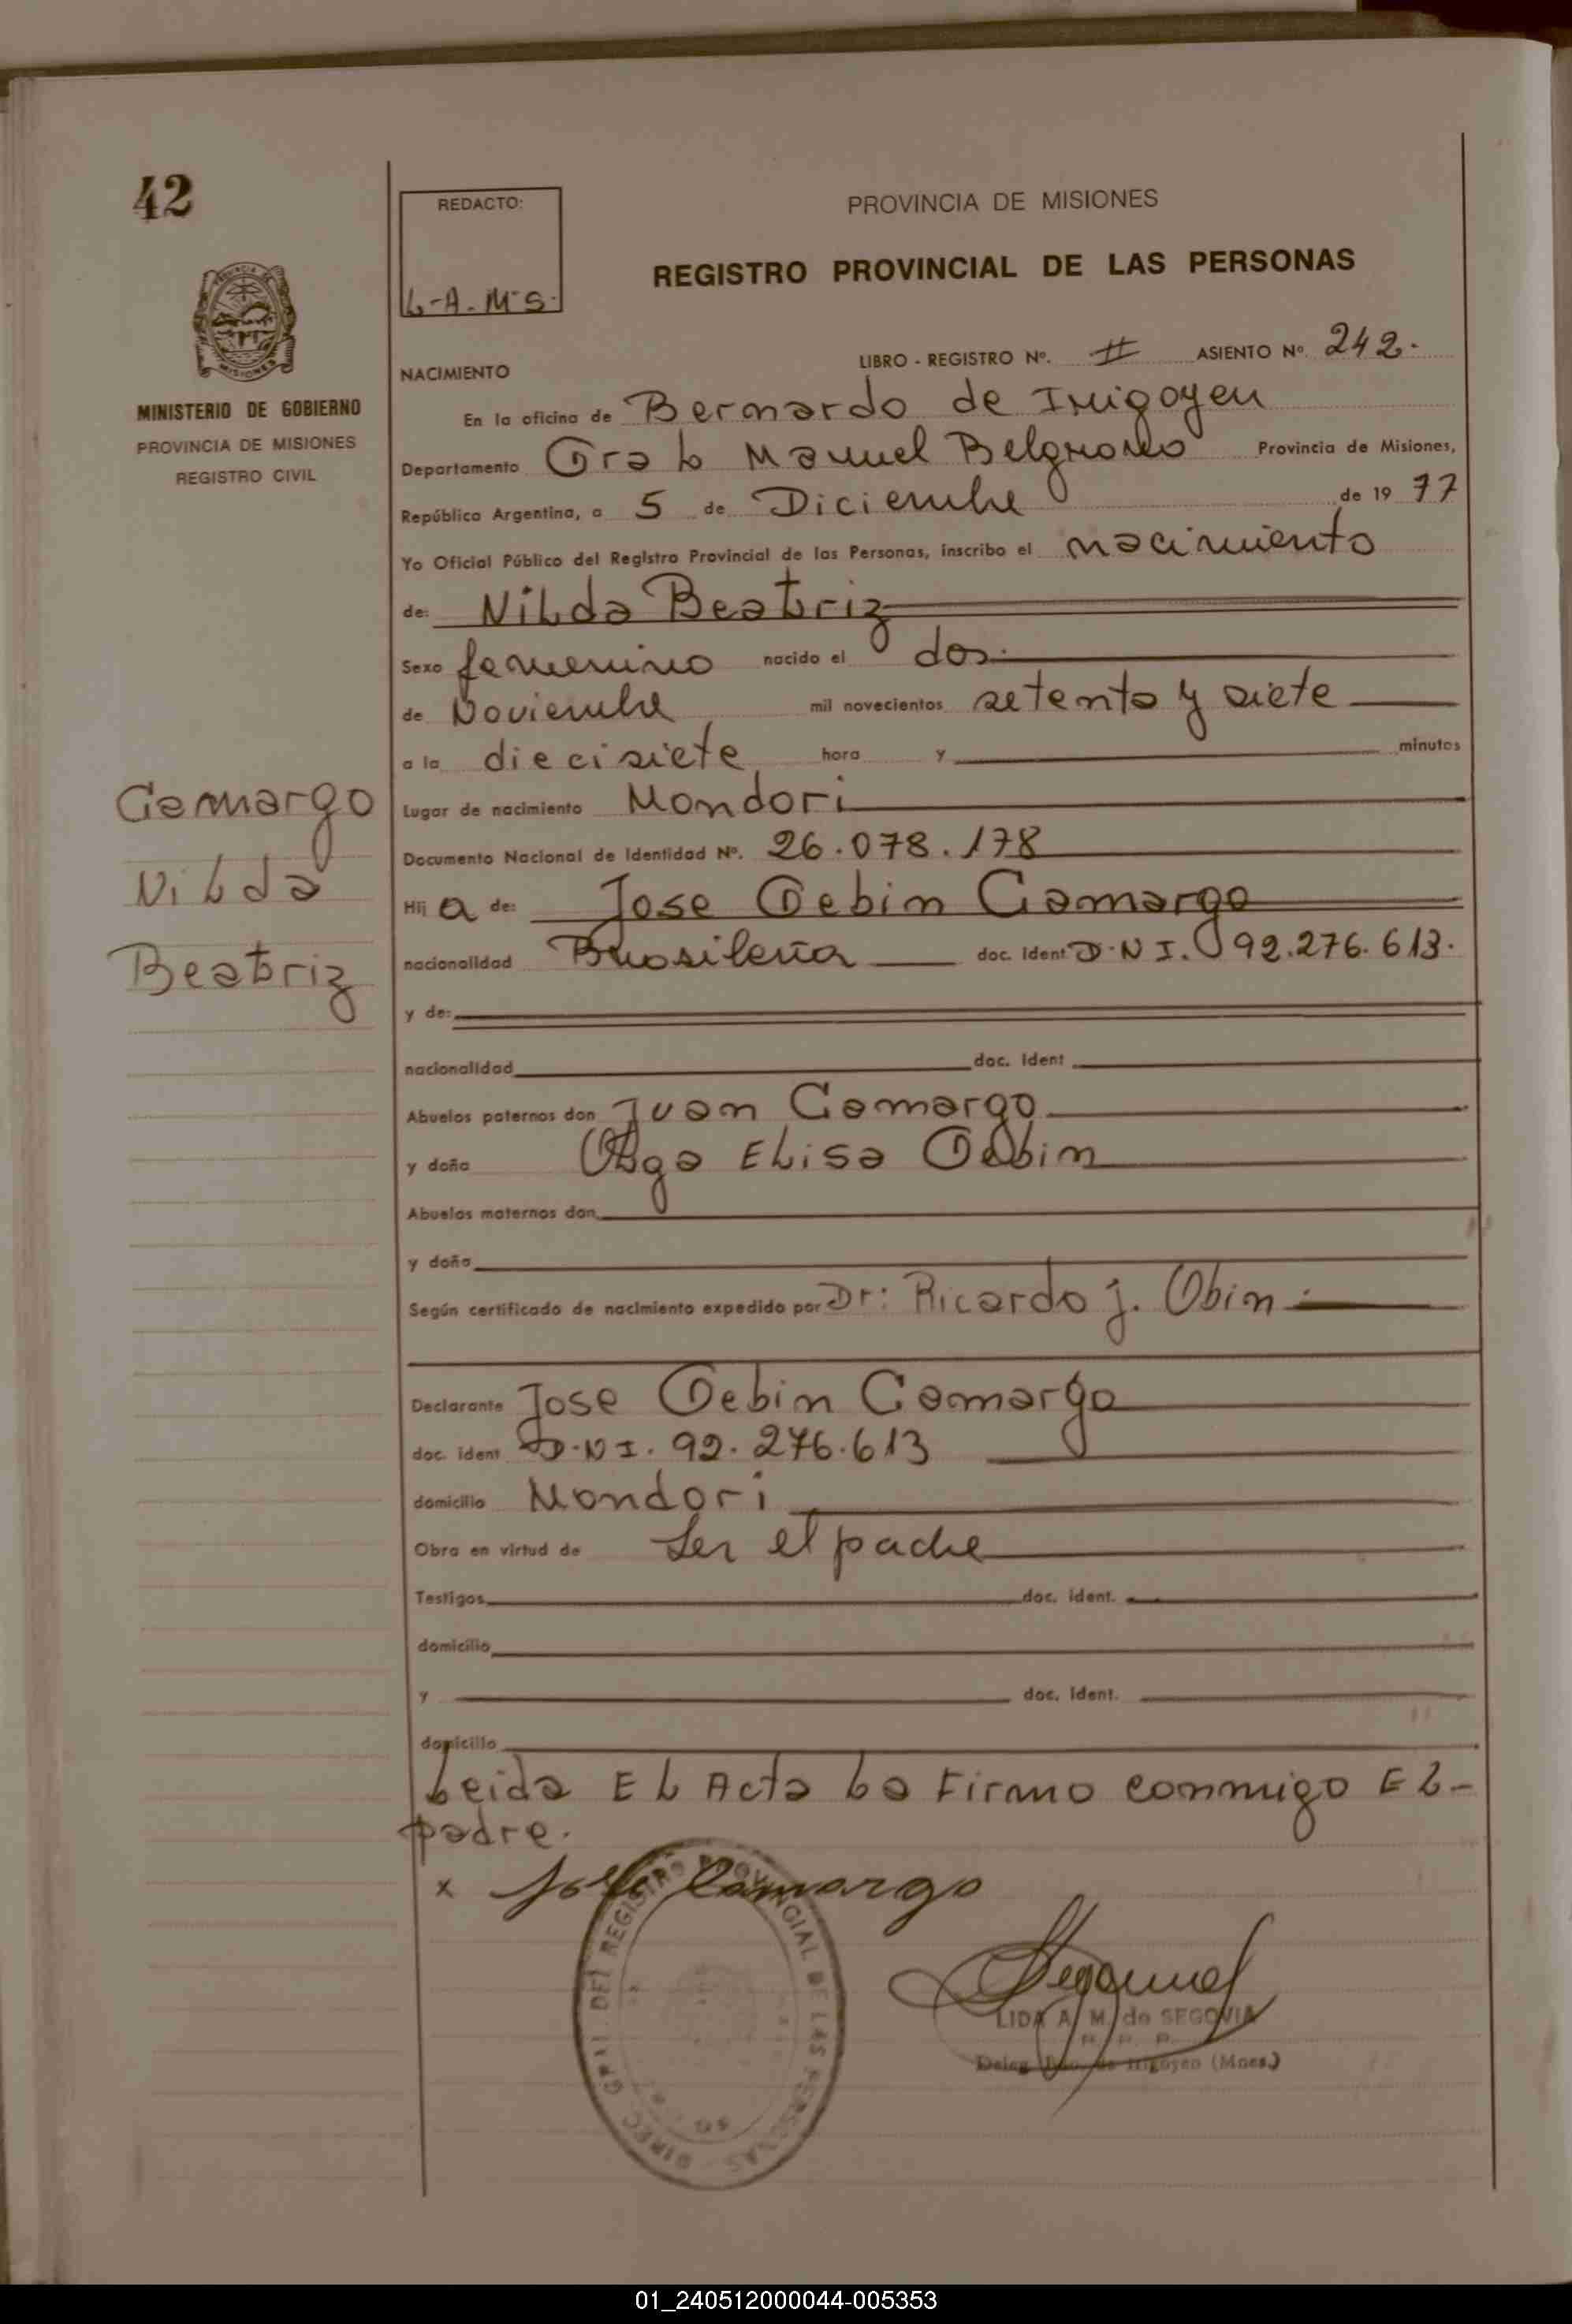 42
REDACTO:
L-A.M-S-
PROVINCIA DE MISIONES
REGISTRO PROVINCIAL DE LAS PERSONAS
PROVINCIA DE MISIONES
MINISTERIO DE GOBIERNO
PROVINCIA DE MISIONES
REGISTRO CIVIL
LIBRO - REGISTRO Nº. II ASIENTO Nº 242.
NACIMIENTO
En la oficina de Bernardo de Irrigoyen
Departamento Gral Manuel Belgrano Provincia de Misiones,
República Argentina, a 5 de Diciembre de 19 77
Yo Oficial Público del Registro Provincial de las Personas, inscribo el nacimiento
de: Nilda Beatriz
Sexo femenino nacido el dos.
de Noviembre mil novecientos setenta y siete
a la diecisiete hora y minutos
Lugar de nacimiento Mondori
Documento Nacional de Identidad Nº. 26.078.178
Hij a de: Jose Oebin Camargo
nacionalidad Brasileña doc. ident D.N I. 92.276.613.
y de:
nacionalidad doc. ident
Abuelos paternos don Juan Camargo
y doña Olga Elisa Oebin
Abuelos maternos don
y doña
Según certificado de nacimiento expedido por Dr: Ricardo j. Obin
Camargo
Nilda
Beatriz
Declarante Jose Oebin Camargo
doc. ident D.N I. 92.276.613
domicilio Mondori
Obra en virtud de Ser el padre
Testigos doc. ident.
domicilio
y doc. ident.
domicilio
Leida El Acta La Firmo conmigo El-
padre.
x Jose Camargo
DIREC. GRL. DEL REGISTRO PROVINCIAL DE LAS PERSONAS
LIDA A. M. de SEGOVIA
Deleg. Bdo. de Irigoyen (Mnes.)
01_240512000044-005353